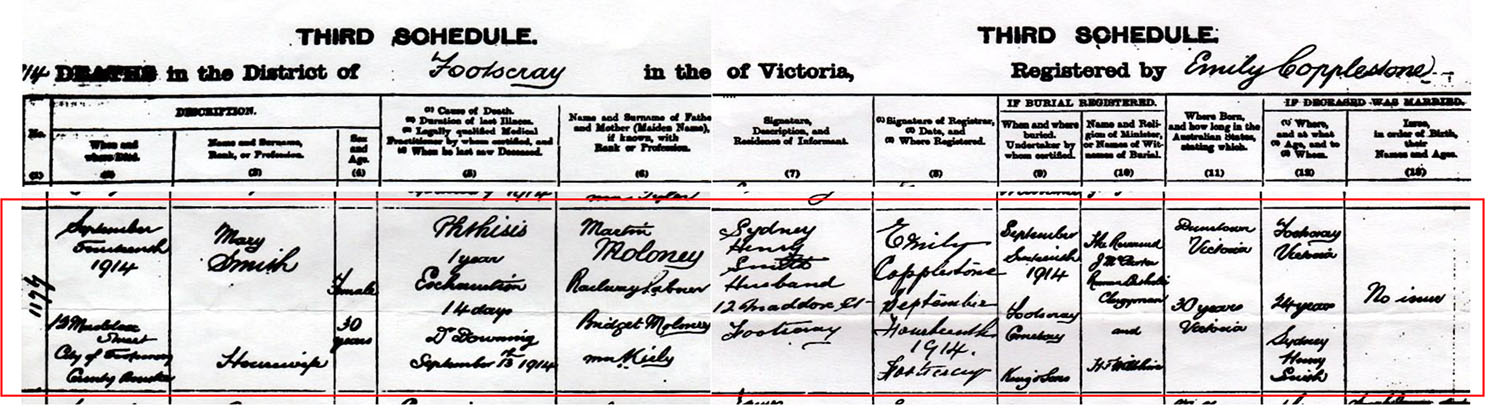 THIRD SCHEDULE.
THIRD SCHEDULE.
14 DEATHS in the District of Footscray in the of Victoria, Registered by Emily Copplestone
DESCRIPTION.
IF BURIAL REGISTERED.
IF DECEASED WAS MARRIED.
No.
(1)
When and
where Died.
(2)
Name and Surname,
Rank, or Profession.
(3)
Sex
and
Age.
(4)
(1) Cause of Death.
(2) Duration of last Illness.
(3) Legally qualified Medical
Practitioner by whom certified, and
(4) When he last saw Deceased.
(5)
Name and Surname of Fathe
and Mother (Maiden Name),
if known, with
Rank or Profession.
(6)
Signature,
Description, and
Residence of Informant.
(7)
(1) Signature of Registrar,
(2) Date, and
(3) Where Registered.
(8)
When and where
buried.
Undertaker by
whom certified.
(9)
Name and Reli-
gion of Minister,
or Names of Wit-
nesses of Burial.
(10)
Where Born,
and how long in the
Australian States,
stating which.
(11)
(1) Where,
and at what
(2) Age, and to
(3) Whom.
(12)
Issue,
in order of Birth,
their
Names and Ages.
(13)
1914
1177
September
Fourteenth
1914
12 Maddox
Street
City of Footscray
County Bourke
Mary
Smith
Housewife
Female
30
years
Phthisis
1 year
Exhaustion
14 days
Dr Downing
September 13th 1914
Martin
Moloney
Railway Labourer
Bridget Moloney
mn Kiely
Sydney
Henry
Smith
Husband
12 Maddox St
Footscray
Emily
Copplestone
September
Fourteenth
1914.
Footscray
September
Sixteenth
1914
Footscray
Cemetery
King & Sons
The Reverend
Roman Catholic
Clergyman
and
Victoria
30 years
Victoria
Footscray
Victoria
24 years
Sydney
Henry
Smith
No issue